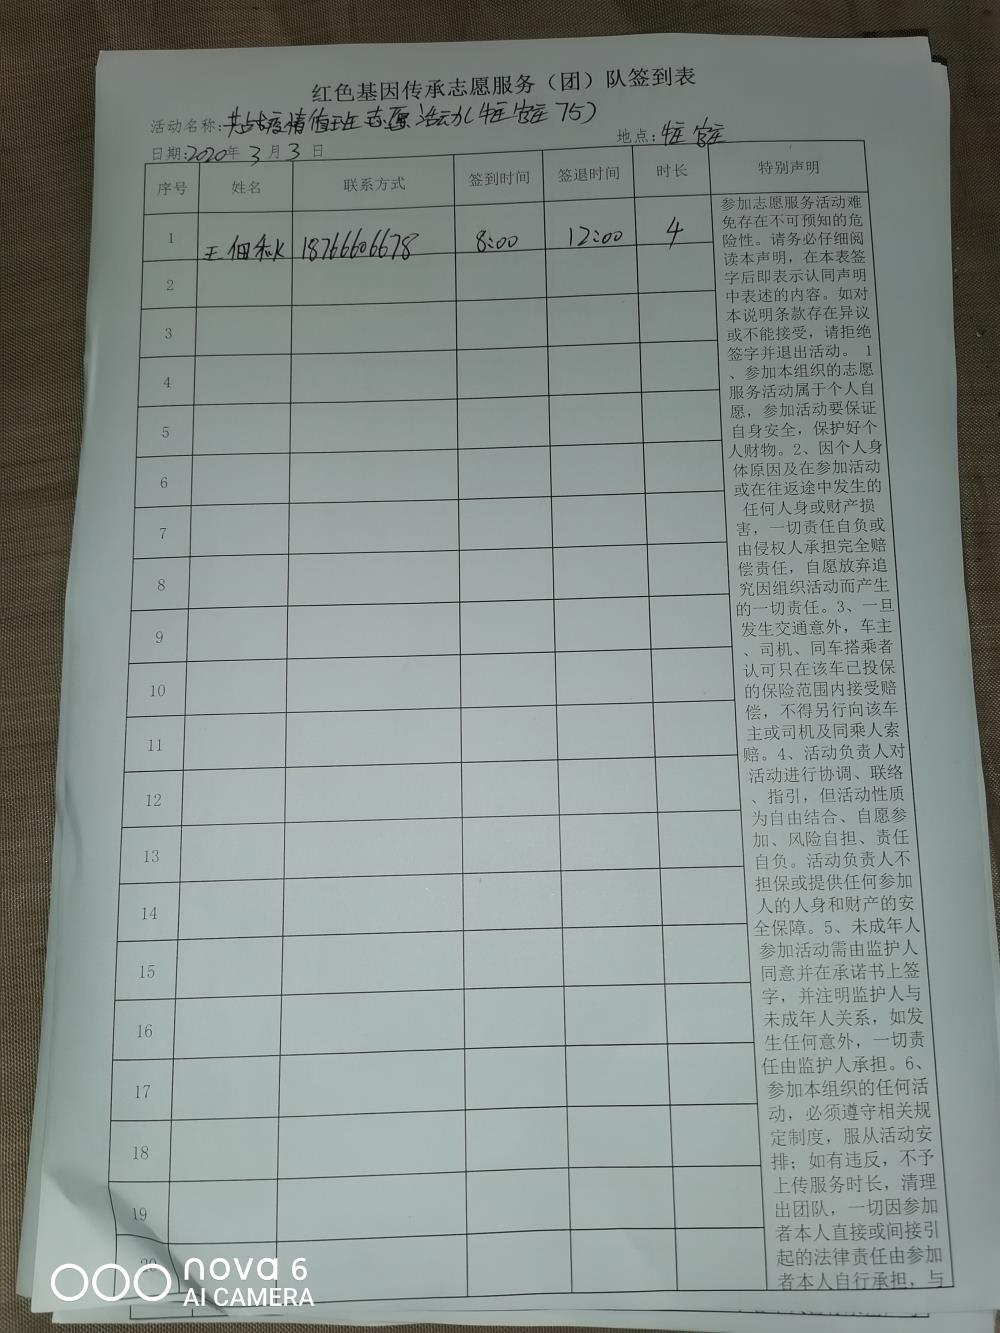 红色基因传承志愿服务（团）队签到表
活动名称:共战疫情值班志愿活动(
地点:
日期:2020年3月3日
序号 姓名 联系方式 签到时间 签退时间 时长 特别声明
1 王 18766606678 8:00 12:00 4
2
3
4
5
6
7
8
9
10
11
12
13
14
15
16
17
18
19
20
参加志愿服务活动难
免存在不可预知的危
险性。请务必仔细阅
读本声明，在本表签
字后即表示认同声明
中表述的内容。如对
本说明条款存在异议
或不能接受，请拒绝
签字并退出活动。 1
、参加本组织的志愿
服务活动属于个人自
愿，参加活动要保证
自身安全，保护好个
人财物。2、因个人身
体原因及在参加活动
或在往返途中发生的
任何人身或财产损
害，一切责任自负或
由侵权人承担完全赔
偿责任，自愿放弃追
究因组织活动而产生
的一切责任。3、一旦
发生交通意外，车主
、司机、同车搭乘者
认可只在该车已投保
的保险范围内接受赔
偿，不得另行向该车
主或司机及同乘人索
赔。4、活动负责人对
活动进行协调、联络
、指引，但活动性质
为自由结合、自愿参
加、风险自担、责任
自负。活动负责人不
担保或提供任何参加
人的人身和财产的安
全保障。5、未成年人
参加活动需由监护人
同意并在承诺书上签
字，并注明监护人与
未成年人关系，如发
生任何意外，一切责
任由监护人承担。6、
参加本组织的任何活
动，必须遵守相关规
定制度，服从活动安
排；如有违反，不予
上传服务时长，清理
出团队，一切因参加
者本人直接或间接引
起的法律责任由参加
者本人自行承担，与
nova 6
AI CAMERA